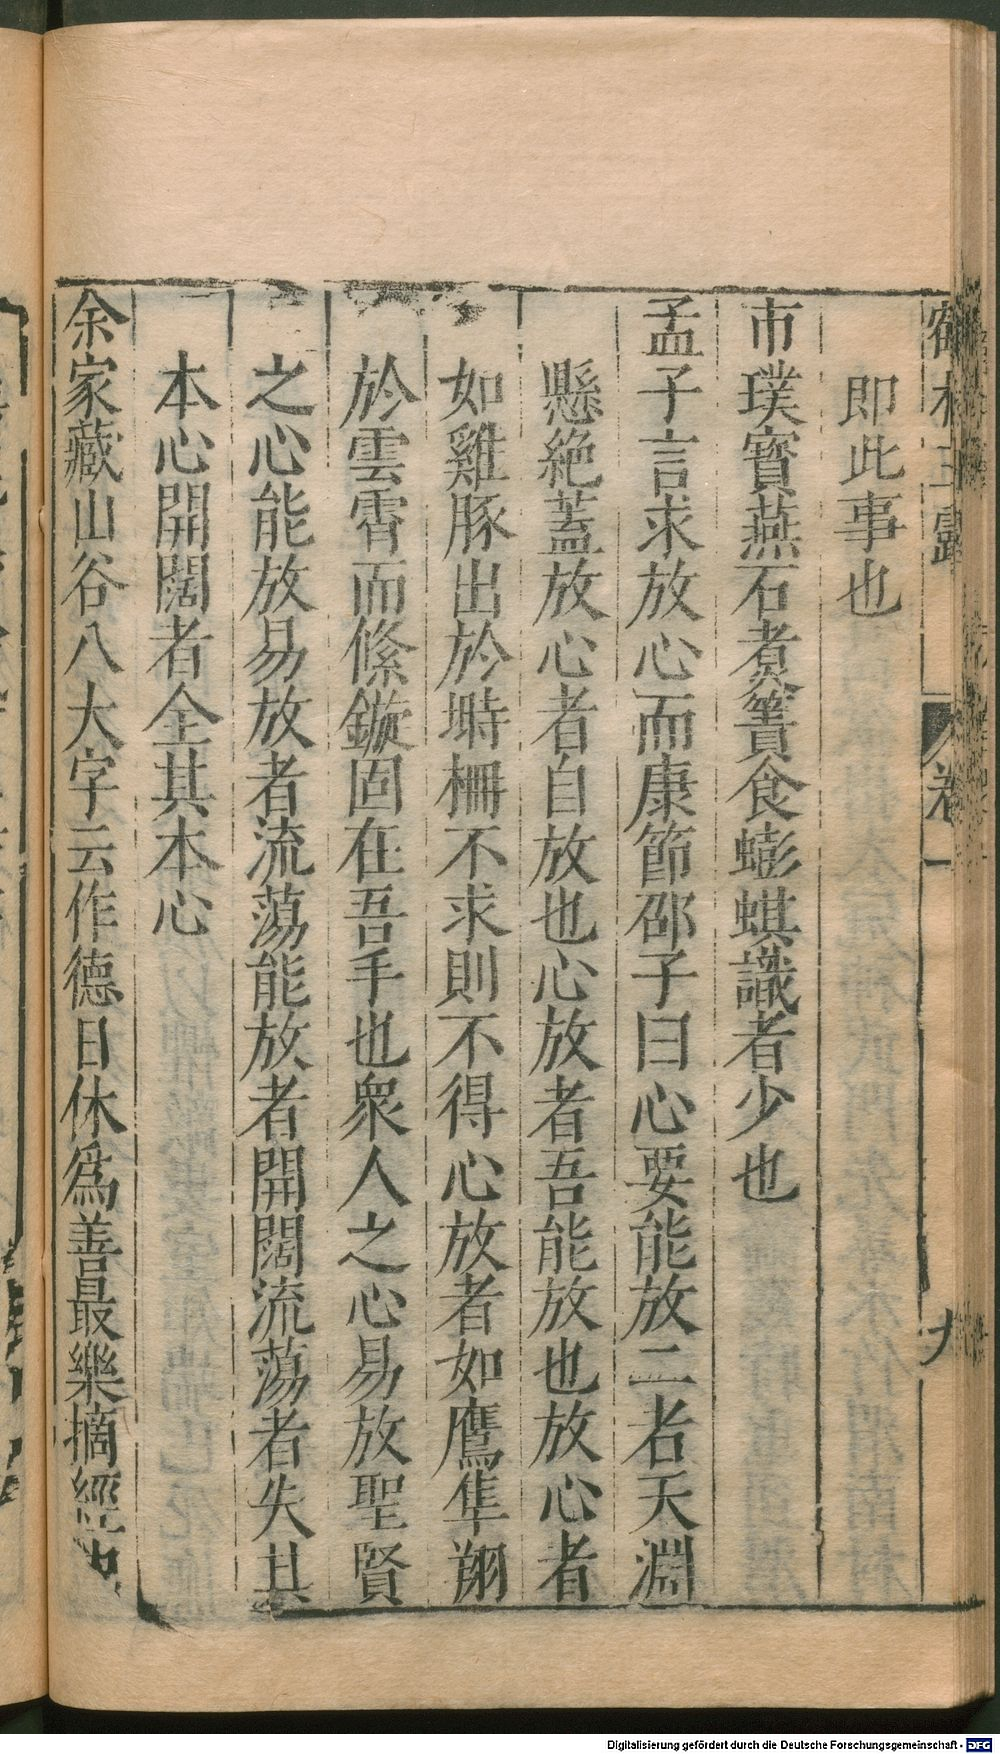 鶴林玉露 卷一 九
即此事也
市璞寶燕石煮簀食蟛蜞識者少也
孟子言求放心而康節邵子曰心要能放二者天淵
懸絶蓋放心者自放也心放者吾能放也放心者
如雞豚出於塒柵不求則不得心放者如鷹隼翔
於雲霄而絛鏇固在吾手也衆人之心易放聖賢
之心能放易放者流蕩能放者開闊流蕩者失其
本心開闊者全其本心
余家藏山谷八大字云作德日休爲善最樂摘經史
Digitalisierung gefördert durch die Deutsche Forschungsgemeinschaft - DFG